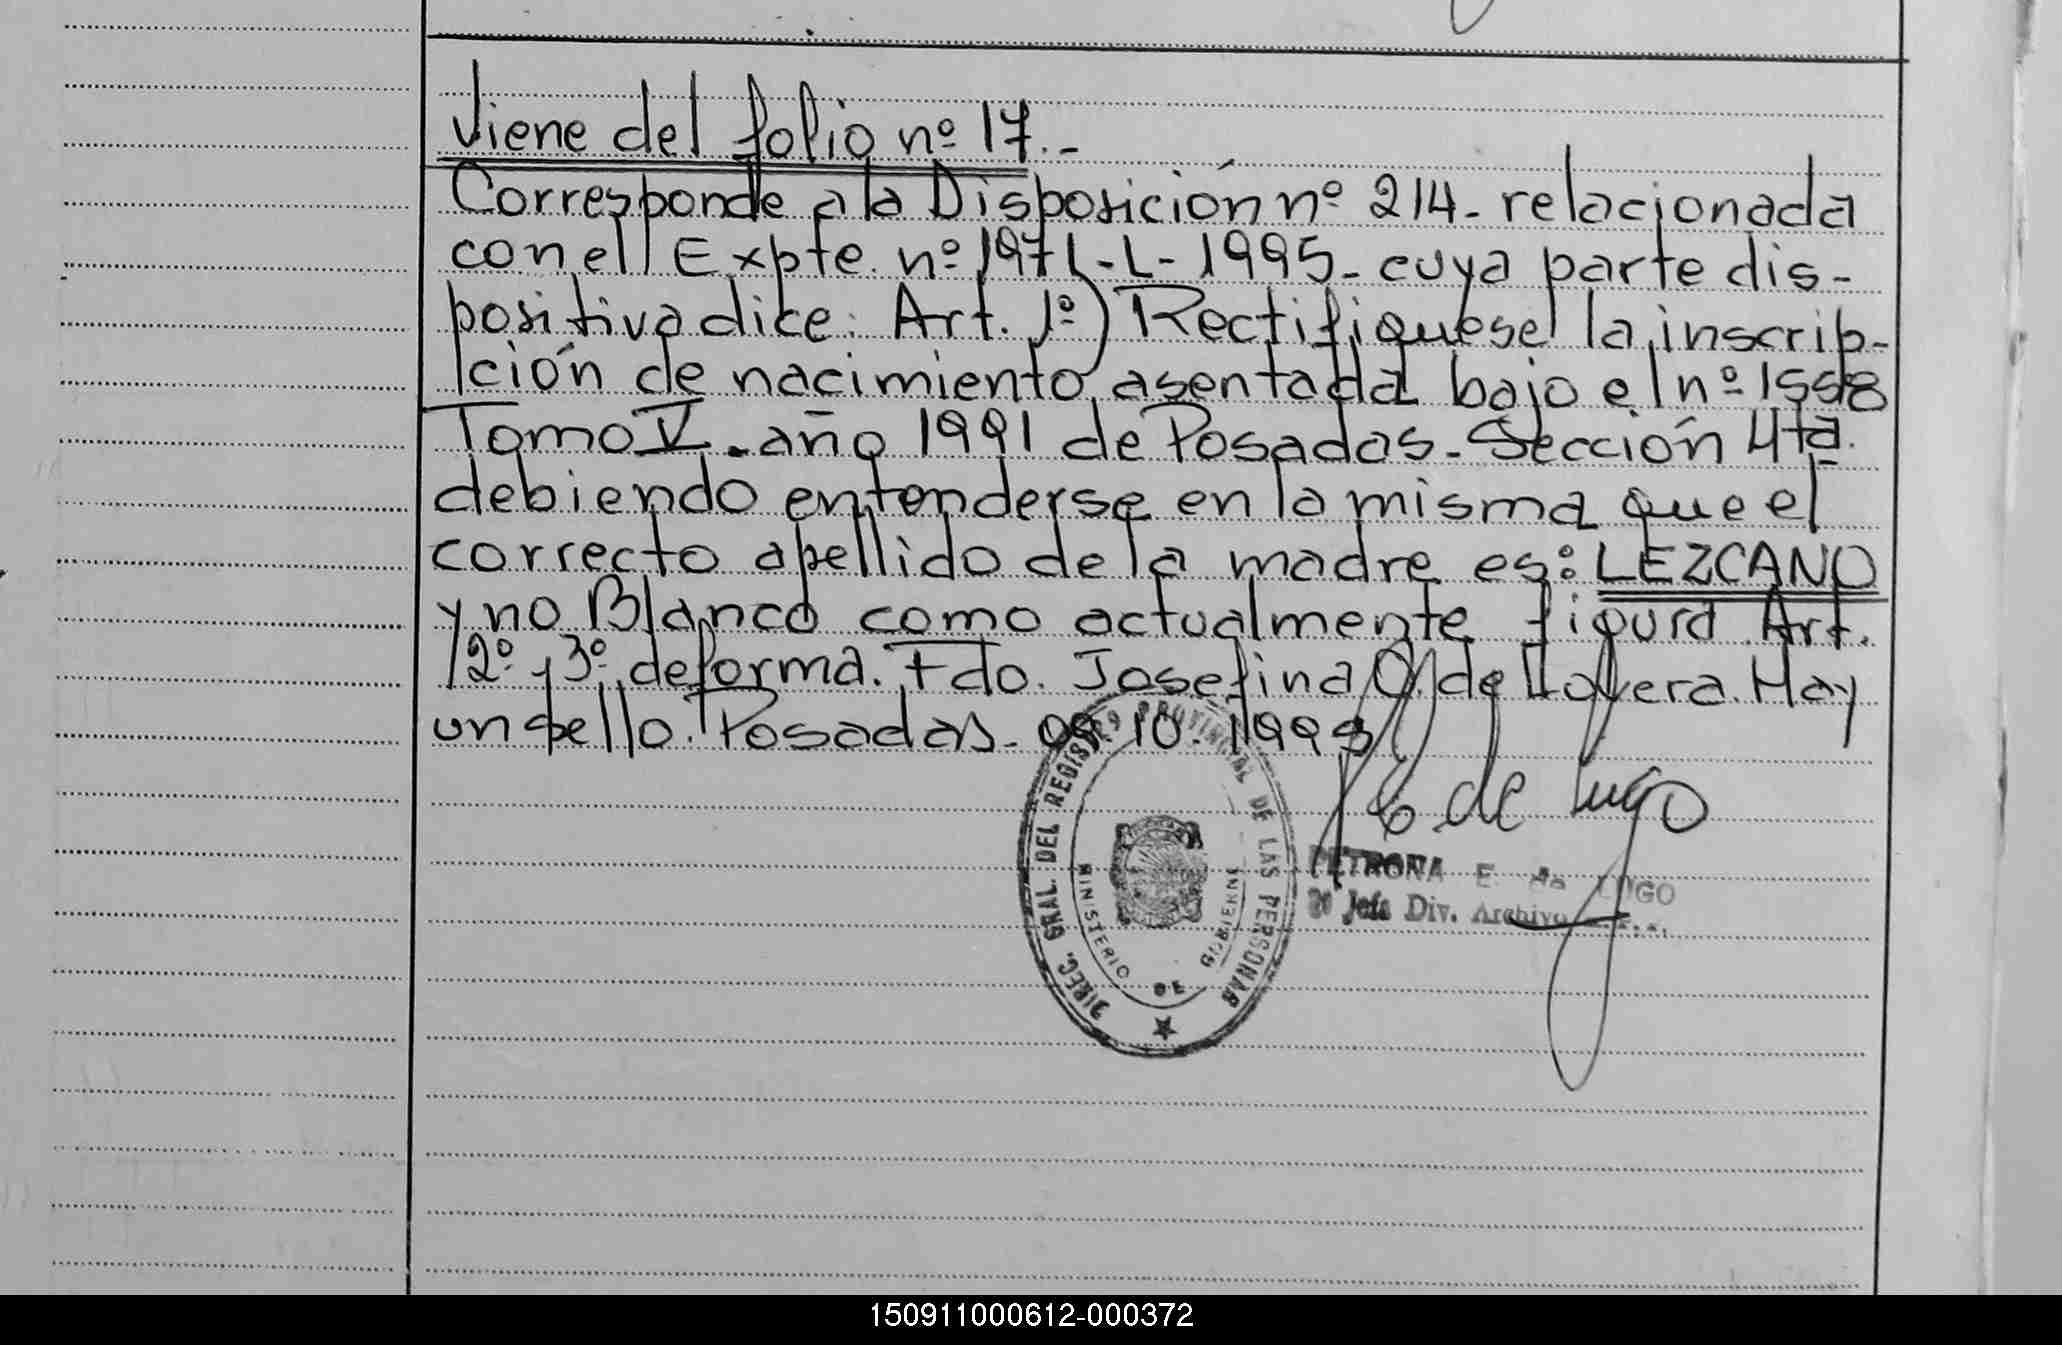 Viene del folio nº 17.-
Corresponde a la Disposición nº 214- relacionada
con el Expte. nº 1971-L-1995- cuya parte dis-
positiva dice: Art. 1º) Rectifiquese la inscrip-
ción de nacimiento asentada bajo el nº 1558
Tomo V - año 1991 de Posadas- Sección 4ta.
debiendo entenderse en la misma que el
correcto apellido de la madre es: LEZCANO
y no Blanco como actualmente figura. Art.
2º y 3º de forma. Fdo. Josefina de Llovera. Hay
un sello. Posadas- 09.10.1995
DIREC. GRAL. DEL REGISTRO PROVINCIAL DE LAS PERSONAS
MINISTERIO DE GOBIERNO
E. de Lugo
PETRONA E. de LUGO
Jefa Div. Archivo
150911000612-000372